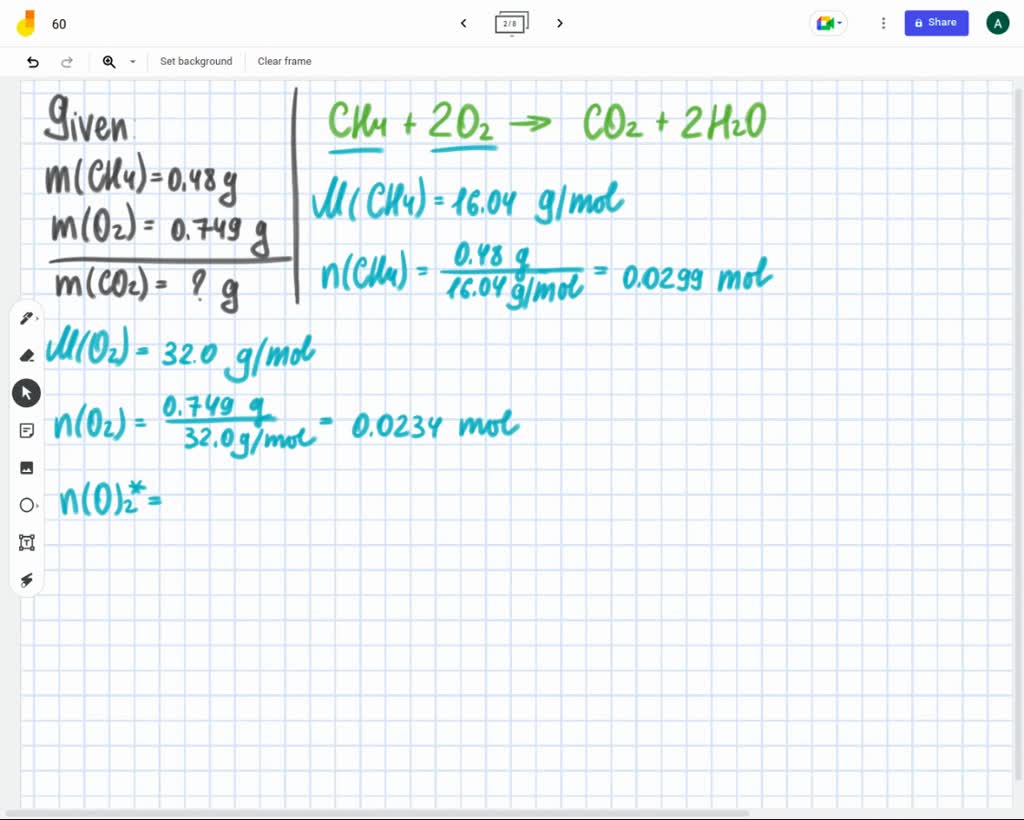 60
2/8
Share
A
Set background
Clear frame
Given:
m(CH4)=0.48 g
m(O2) = 0.749 g
m(CO2) = ? g
CH4 + 2O2 → CO2 + 2H2O
M(CH4) = 16.04 g/mol
n(CH4) = 0.48 g / 16.04 g/mol = 0.0299 mol
M(O2) = 32.0 g/mol
n(O2) = 0.749 g / 32.0 g/mol = 0.0234 mol
n(O)2* =